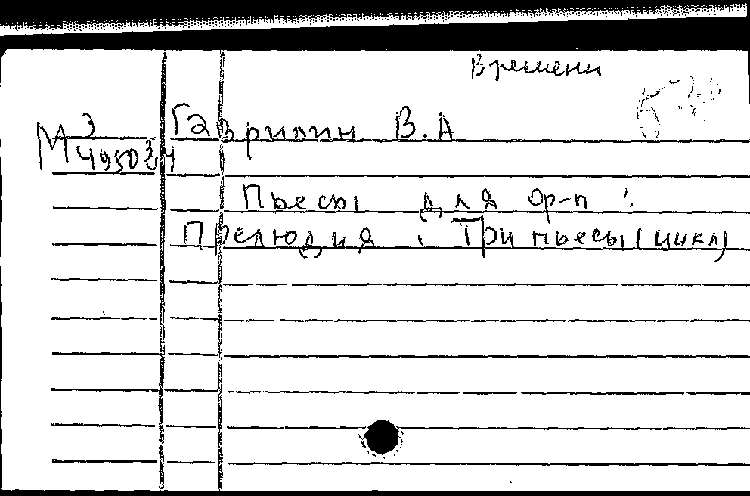 Времени
Гаврилин В. А
М 3
49503
Пьесы для ф-п:
Прелюдия. Три пьесы (цикл)